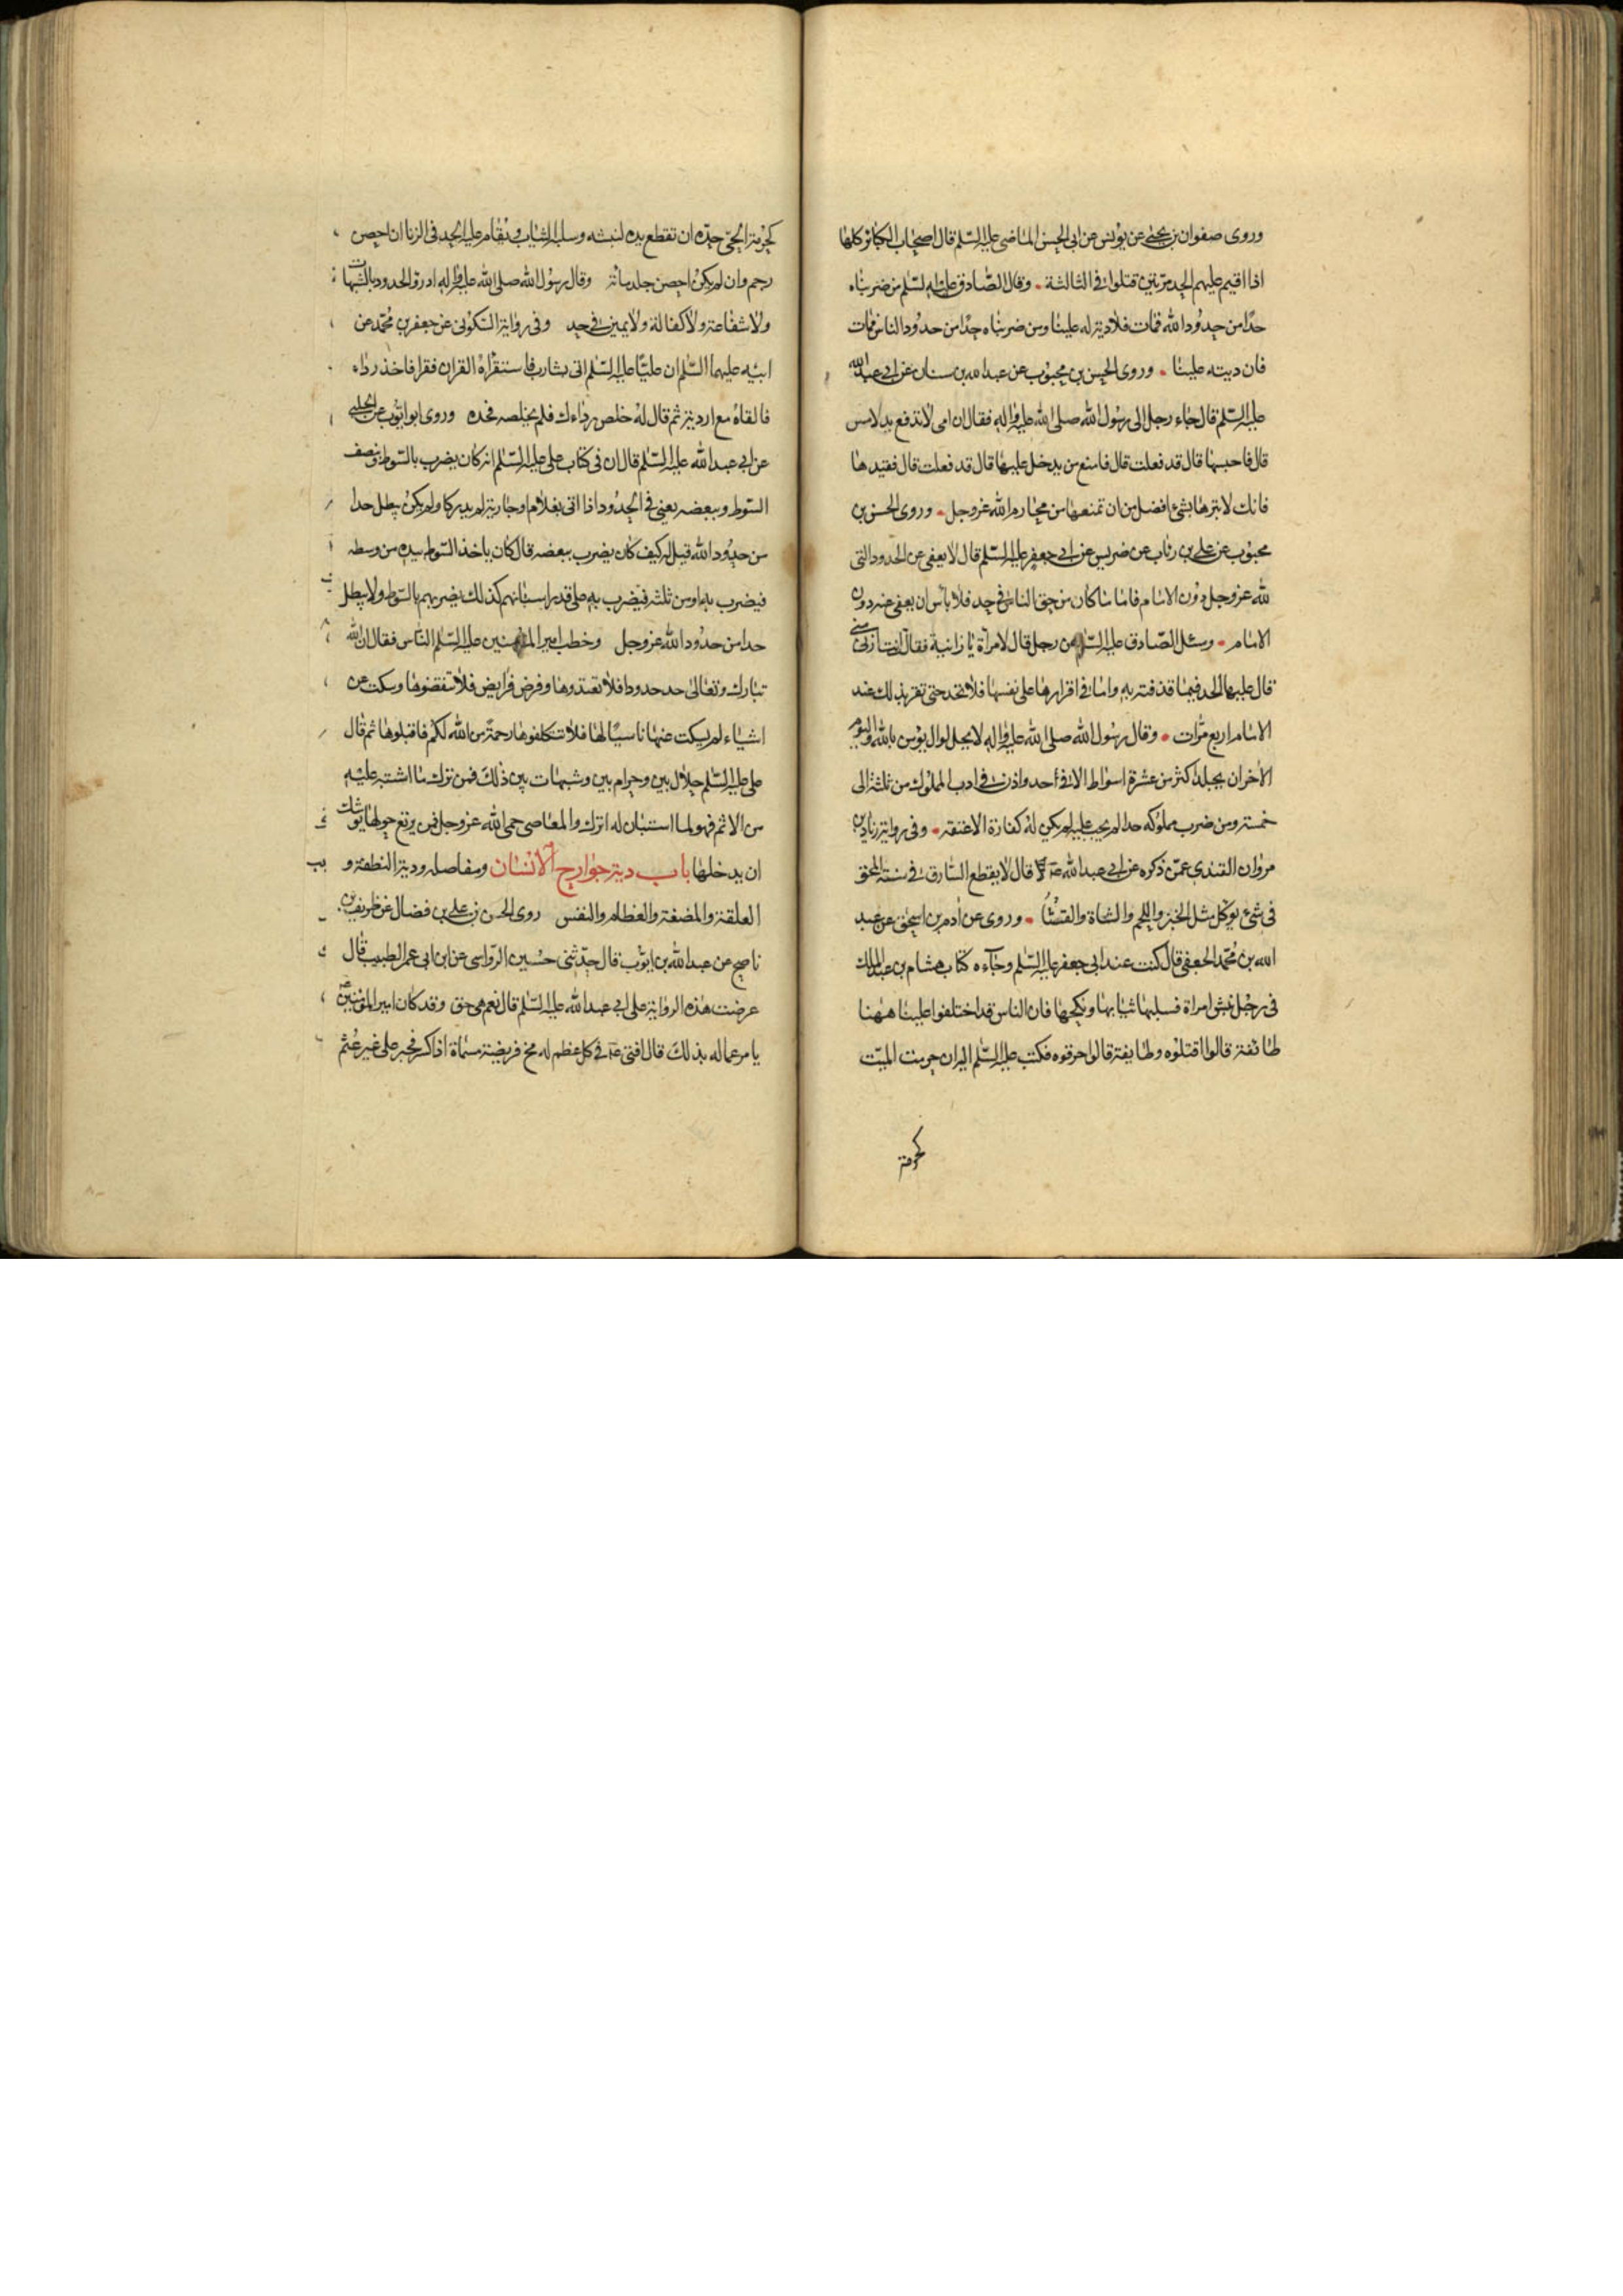 وروى صفوان بن يحيى عن يونس عن ابى الحسن الماضى عليه السلم قال اصحاب الكبائر كلها
اذا اقيم عليهم الحد مرتين قتلوا فى الثالثة وقال الصادق عليه السلم من ضربناه
حدا من حدود الله فمات فلا دية له علينا ومن ضربناه حدا من حدود الناس فمات
فان ديته علينا وروى الحسن بن محبوب عن عبد الله بن سنان عن ابى عبد الله
عليه السلم قال جاء رجل الى رسول الله صلى الله عليه واله فقال ان امى لا تدفع يد لامس
قال فاحبسها قال قد فعلت قال فامنع من يدخل عليها قال قد فعلت قال فقيدها
فانك لا تبرها بشئ افضل من ان تمنعها من محارم الله عز وجل وروى الحسن بن
محبوب عن على بن رئاب عن ضريس عن ابى جعفر عليه السلم قال لا يعفى عن الحدود التى
لله عز وجل دون الامام فاما ما كان من حق الناس فى حد فلا باس ان يعفى عنه دون
الامام وسئل الصادق عليه السلم عن رجل قال لامرأة يا زانية فقالت انت ازنى منى
قال عليها الحد فيما قذفته به واما فى اقرارها على نفسها فلا تحد حتى تقر بذلك عند
الامام اربع مرات وقال رسول الله صلى الله عليه واله لا يحل لوال يؤمن بالله واليوم
الاخر ان يجلد اكثر من عشرة اسواط الا فى حد واذن فى ادب المملوك من ثلثة الى
خمسة ومن ضرب مملوكه حدا لم يجب عليه لم يكن له كفارة الا عتقه وفى رواية زياد بن
مروان القندى عمن ذكره عن ابى عبد الله قال لا يقطع السارق فى سنة المحق
فى شئ يوكل مثل الخبز واللحم والشاة والقثا وروى عن ادم بن اسحق عن عبد
الله بن محمد الجعفى قال كنت عند ابى جعفر عليه السلم وجآءه كتاب هشام بن عبد الملك
فى رجل نبش امراة فسلبها ثيابها ونكحها فان الناس قد اختلفوا علينا ههنا
طائفة قالوا اقتلوه وطايفة قالوا حرقوه فكتب عليه السلم اليه ان حرمت الميت
كحرمة
كحرمة الحى حده ان تقطع يده لنبشه وسلبه الثياب ويقام عليه الحد فى الزنا ان احصن
رجم وان لم يكن احصن جلد مائة وقال رسول الله صلى الله عليه واله ادرؤا الحدود بالشبهات
ولا شفاعة ولا كفالة ولا يمين فى حد وفى رواية السكونى عن جعفر بن محمد عن
ابيه عليهما السلم ان عليا عليه السلم اتى بشارب فاستقرأه القران فقرا فاخذ رداءه
فالقاه مع اردية ثم قال له خلص رداءك فلم يخلصه فحده وروى ابو ايوب عن الحلبى
عن ابى عبد الله عليه السلم قال ان فى كتاب على عليه السلم انه كان يضرب بالسوط وبنصف
السوط وببعضه يعنى فى الحدود اذا اتى بغلام او جارية لم يدركا ولم يكن يبطل حدا
من حدود الله قيل له كيف كان يضرب ببعضه قال كان ياخذ السوط بيده من وسطه
فيضرب به او من ثلثه فيضرب به على قدر اسنانهم كذلك يضربهم بالسوط ولا يبطل
حدا من حدود الله عز وجل وخطب امير المؤمنين عليه السلم الناس فقال ان الله
تبارك وتعالى حد حدودا فلا تعتدوها وفرض فرايض فلا تنقضوها وسكت عن
اشياء لم يسكت عنها نسيانا لها فلا تتكلفوها رحمة من الله لكم فاقبلوها ثم قال
على عليه السلم حلال بين وحرام بين وشبهات بين ذلك فمن ترك ما اشتبه عليه
من الاثم فهو لما استبان له اترك والمعاصى حمى الله عز وجل فمن يرتع حولها يوشك
ان يدخلها باب دية جوارح الانسان ومفاصله ودية النطفة و
العلقة والمضغة والعظام والنفس روى الحسن بن على بن فضال عن ظريف بن
ناصح عن عبد الله بن ايوب قال حدثنى حسين الرواسى عن ابن ابى عمر الطبيب قال
عرضت هذه الرواية على ابى عبد الله عليه السلم قال نعم هى حق وقد كان امير المؤمنين
يامر عماله بذلك قال افتى فى كل عظم له مخ فريضة مسماة اذا كسر فجبر على غير عثم